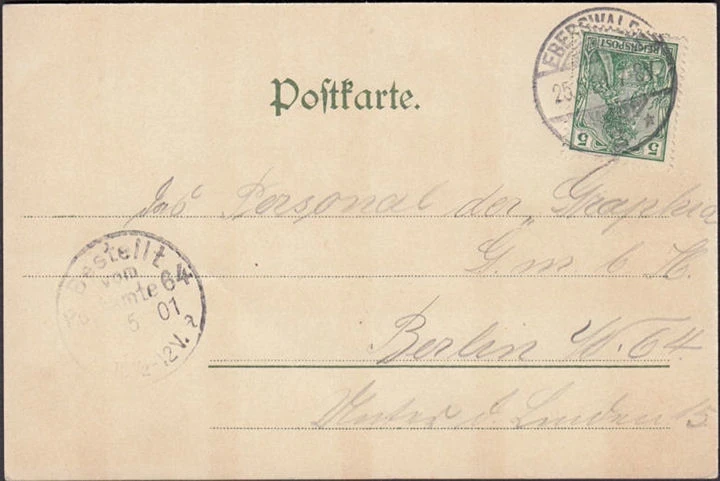 Postkarte.
EBERSWALDE
25
REICHSPOST
5 5
das Personal der „Graphia
G. m. b. H.
Berlin W. 64.
Unter d. Linden 15.
Bestellt
vom
Postamte 64
5 01
-12V. 2